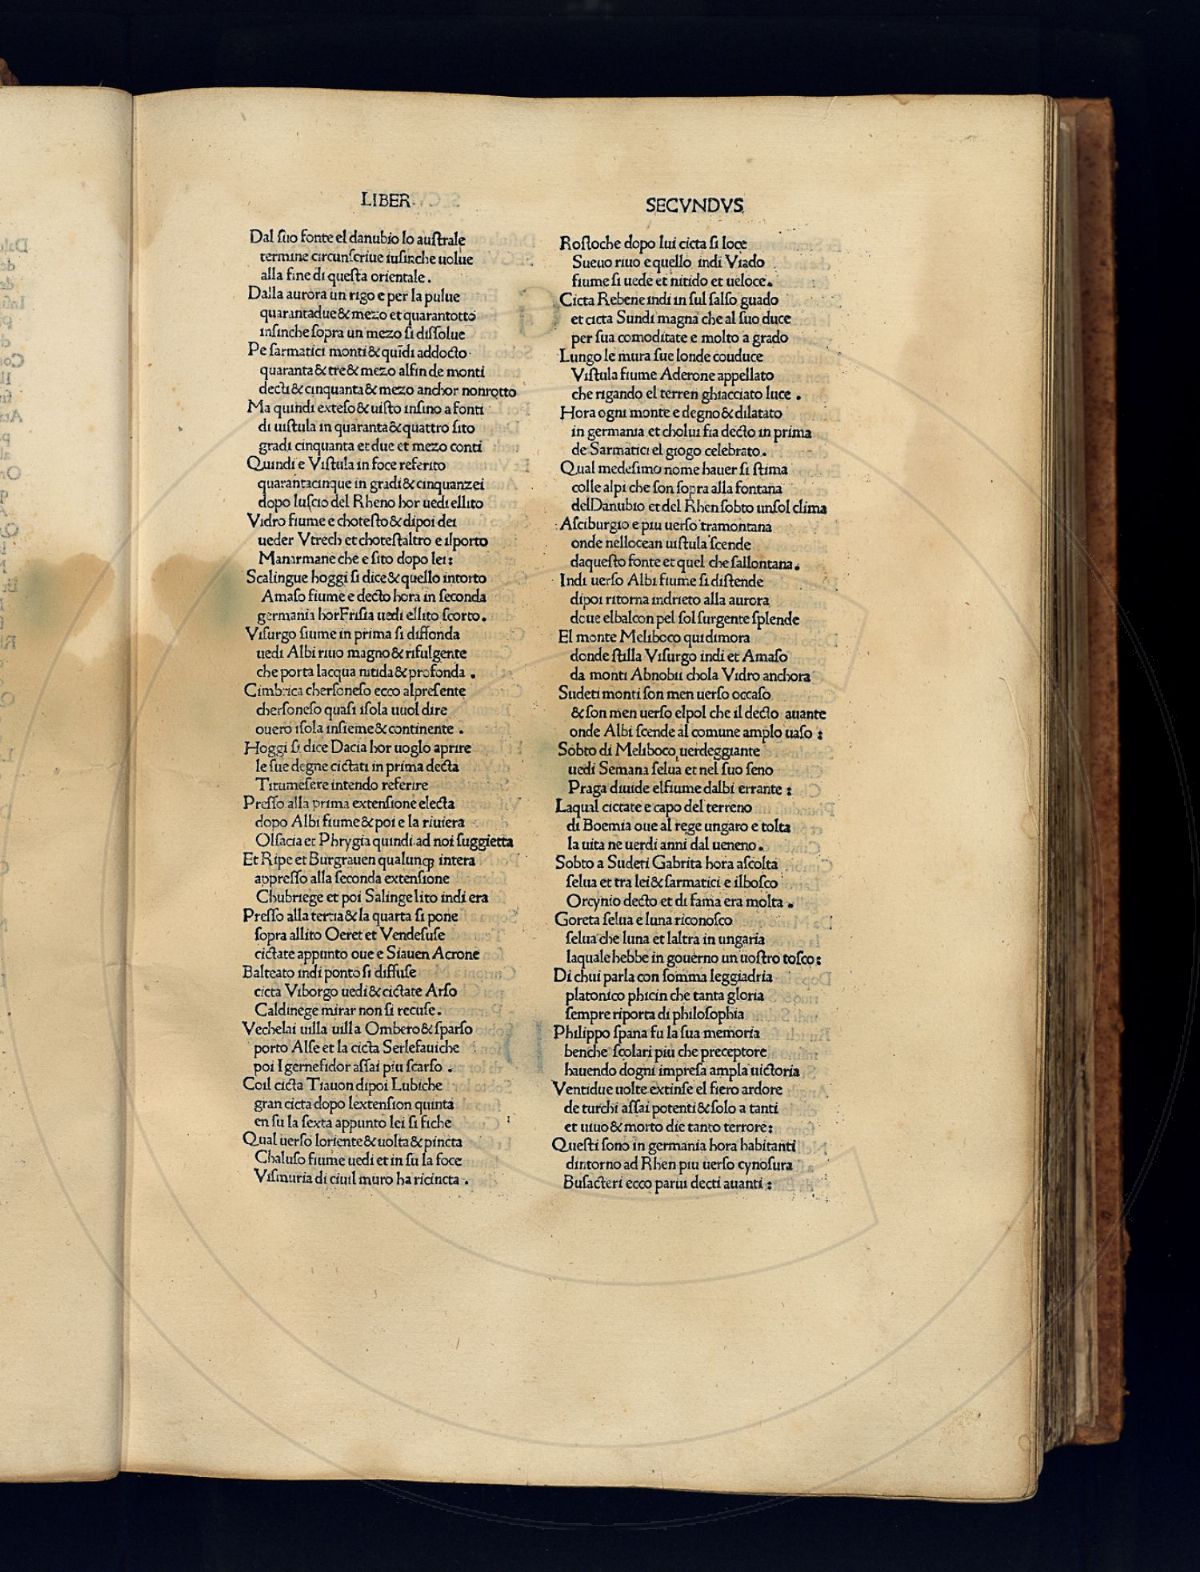 LIBER
Dal suo fonte el danubio lo australe
termine circunscriue iusinche uolue
alla fine di questa orientale.
Dalla aurora un rigo e per la pulue
quarantadue & mezo et quarantotto
insinche sopra un mezo si dissolue
Pe sarmatici monti & quidi addocto
quaranta & tre & mezo alfin de monti
decti & cinquanta & mezo anchor nonrotto
Ma quindi exteso & uisto insino a fonti
di uistula in quaranta & quattro sito
gradi cinquanta et due et mezo conti
Quindi e Vistula in foce referito
quarantacinque in gradi & cinquanzei
dopo luscio del Rheno hor uedi ellito
Vidro fiume e chotesto & dipoi dei
ueder Vtrech et chotestaltro e ilporto
Manarmane che e sito dopo lei:
Scalingue hoggi si dice & quello intorto
Amaso fiume e decto hora in seconda
germania hor Frisia uedi ellito scorto.
Visurgo fiume in prima si diffonda
uedi Albi riuo magno & rifulgente
che porta lacqua nitida & profonda.
Cimbrica chersoneso ecco alpresente
chersoneso quasi isola uuol dire
ouero isola insieme & continente.
Hoggi si dice Dacia hor uoglo aprire
le sue degne cictati in prima decta
Titumesere intendo referire
Presso alla prima extensione electa
dopo Albi fiume & poi e la riuiera
Olsacia et Phrygia quindi ad noi suggietta
Et Ripe et Burgrauen qualunqꝫ intera
appresso alla seconda extensione
Chubriege et poi Salinge lito indi era
Presso alla tertia & la quarta si pone
sopra allito Oeret et Vendesuse
cictate appunto oue e Siauen Acrone
Balteato indi ponto si diffuse
cicta Viborgo uedi & cictate Arso
Caldinege mirar non si recuse.
Vechelai uilla uilla Ombero & sparso
porto Alse et la cicta Serlefauiche
poi Igernefidor assai piu scarso.
Coil cicta Tiauon dipoi Lubiche
gran cicta dopo lextension quinta
en su la sexta appunto lei si fiche
Qual uerso loriente & uolta & pincta
Chaluso fiume uedi et in su la foce
Vismuria di ciuil muro ha ricincta.
SECVNDVS
Rostoche dopo lui cicta si loce
Sueuo riuo e quello indi Viado
fiume si uede et nitido et ueloce.
Cicta Rebene indi in sul salso guado
et cicta Sundi magna che al suo duce
per sua comoditate e molto a grado
Lungo le mura sue londe conduce
Vistula fiume Aderone appellato
che rigando el terren ghiacciato luce.
Hora ogni monte e degno & dilatato
in germania et cholui fia decto in prima
de Sarmatici el giogo celebrato.
Qual medesimo nome hauer si stima
colle alpi che son sopra alla fontana
delDanubio et del Rhen sobto unsol clima
Asciburgio e piu uerso tramontana
onde nellocean uistula scende
daquesto fonte et quel che sallontana.
Indi uerso Albi fiume si distende
dipoi ritorna indrieto alla aurora
doue elbalcon pel sol surgente splende
El monte Meliboco qui dimora
donde stilla Visurgo indi et Amaso
da monti Abnobii chola Vidro anchora
Sudeti monti son men uerso occaso
& son men uerso elpol che il decto auante
onde Albi scende al comune amplo uaso:
Sobto di Meliboco uerdeggiante
uedi Semana selua et nel suo seno
Praga diuide elfiume dalbi errante:
Laqual cictate e capo del terreno
di Boemia oue al rege ungaro e tolta
la uita ne uerdi anni dal ueneno.
Sobto a Sudeti Gabrita hora ascolta
selua et tra lei & sarmatici e ilbosco
Orcynio decto et di fama era molta.
Goreta selua e luna riconosco
selua che luna et laltra in ungaria
laquale hebbe in gouerno un uostro tosco:
Di chui parla con somma leggiadria
platonico phicin che tanta gloria
sempre riporta di philosophia
Philippo spana fu la sua memoria
benche scolari piu che preceptore
hauendo dogni impresa ampla uictoria
Ventidue uolte extinse el fiero ardore
de turchi assai potenti & solo a tanti
et uiuo & morto die tanto terrore:
Questi sono in germania hora habitanti
dintorno ad Rhen piu uerso cynosura
Busacteri ecco parui decti auanti: